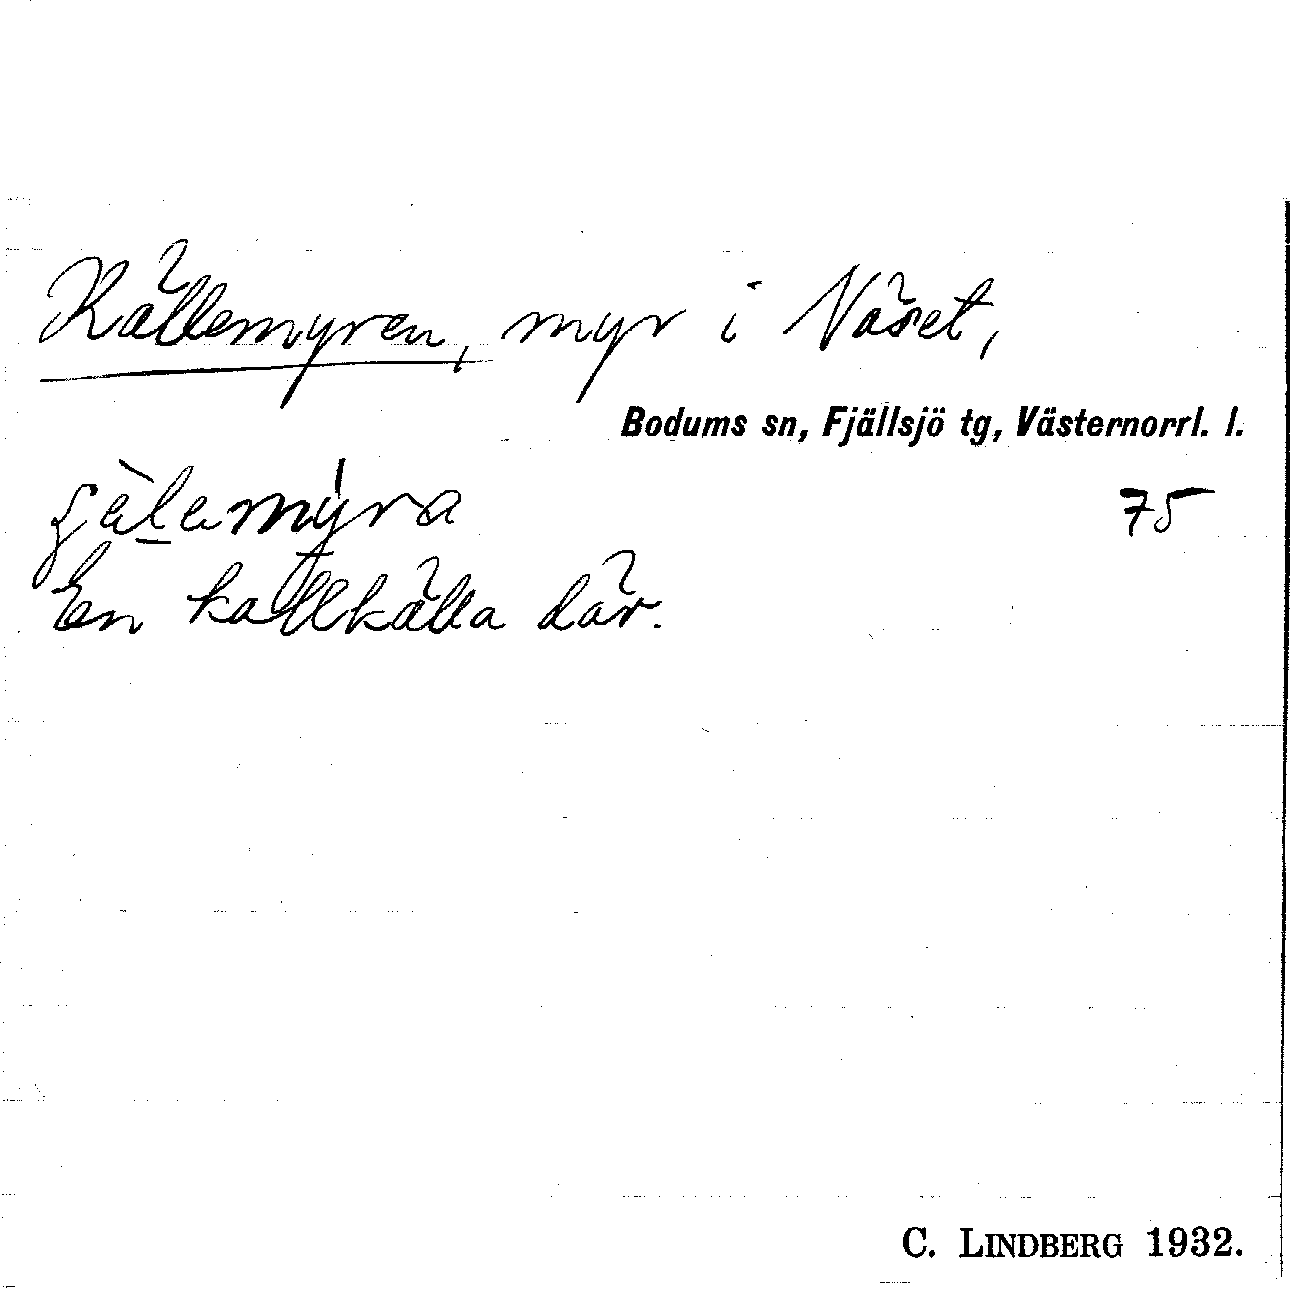 Källemyren, myr i Näset,
Bodums sn, Fjällsjö tg, Västernorrl. l.
75
En kallkälla där.
C. LINDBERG 1932.